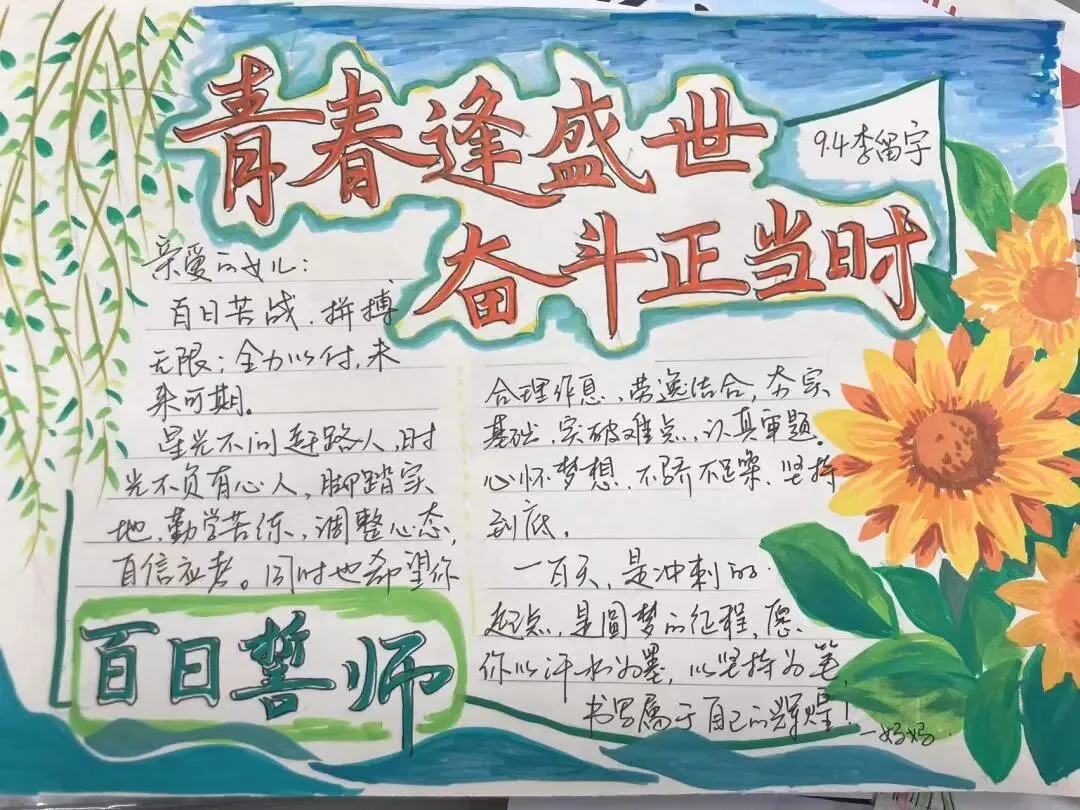 青春逢盛世
奋斗正当时
9.4李留宇
亲爱的女儿：
百日苦战，拼搏
无限；全力以付，未
来可期。
星光不问赶路人，时
光不负有心人，脚踏实
地，勤学苦练，调整心态，
自信应考。同时也希望你
合理作息、劳逸结合，夯实
基础，突破难点，认真审题。
心怀梦想、不骄不躁、坚持
到底。
一百天，是冲刺的
起点，是圆梦的征程，愿
你以汗水为墨，以坚持为笔，
书写属于自己的辉煌！
—妈妈
百日誓师